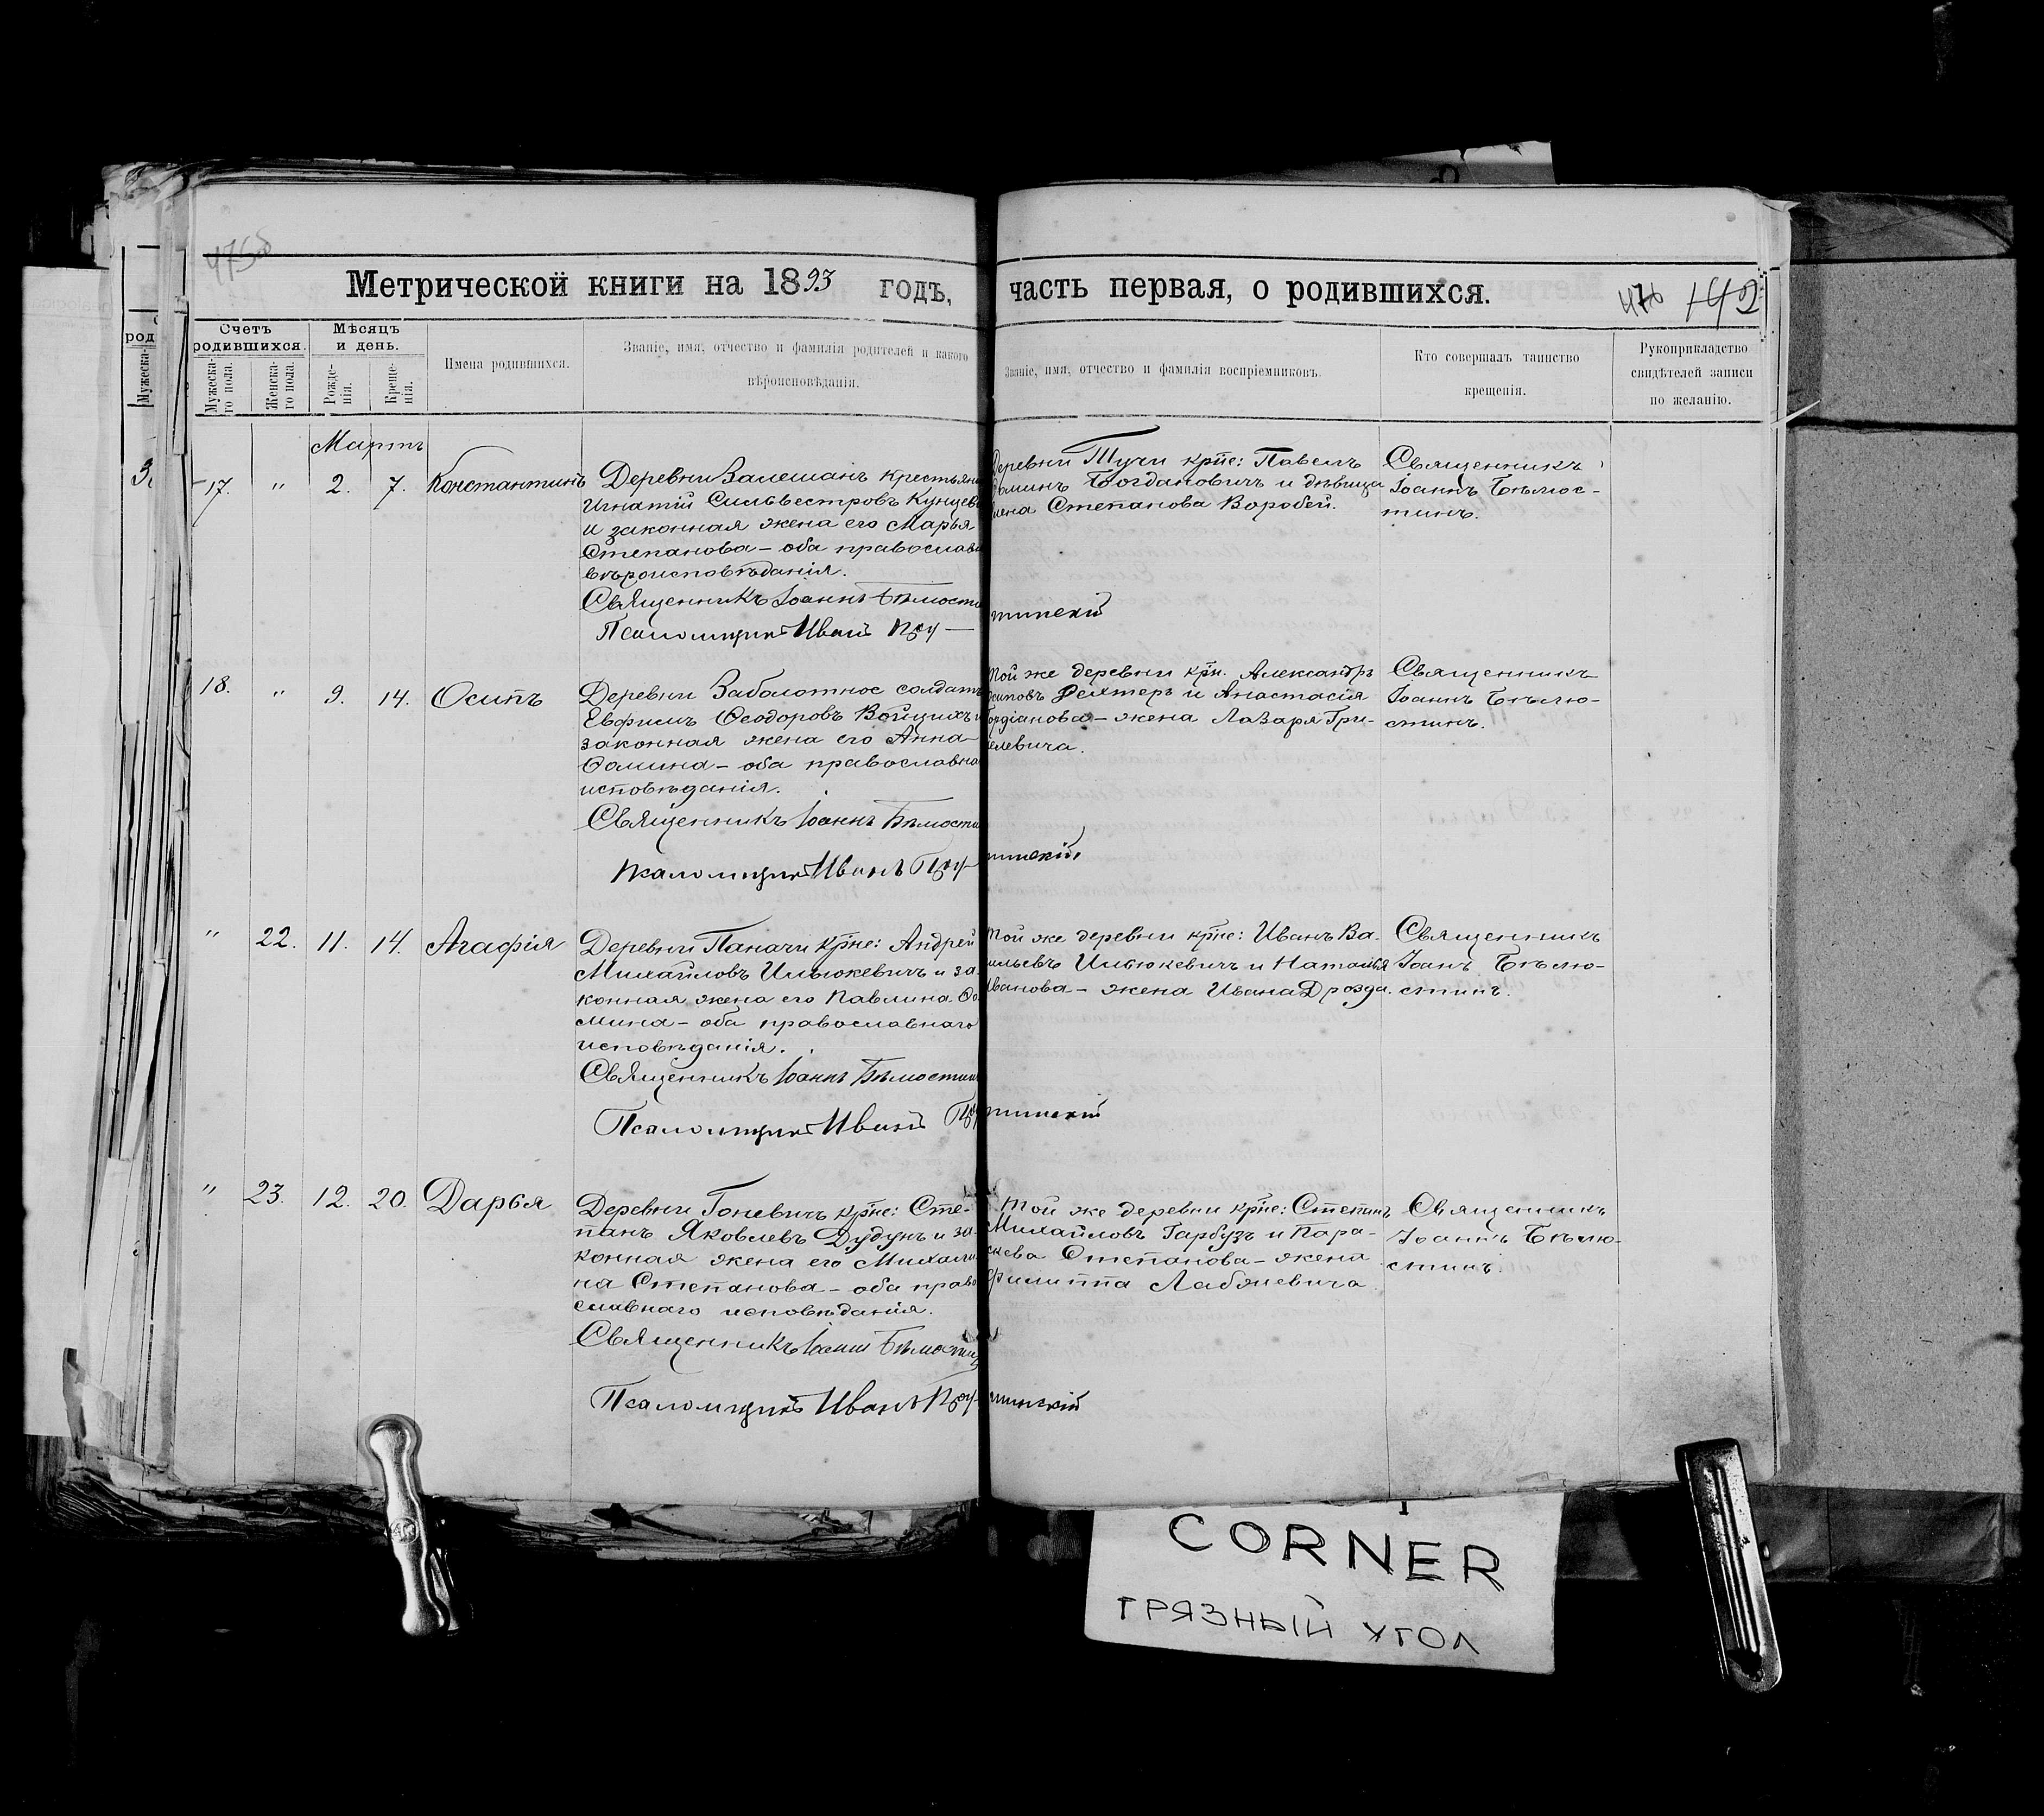 Метрической книги на 1893 годъ, часть первая, о родившихся.
142
Счетъ родившихся.
Мѣсяцъ и день.
Мужеска-го пола.
Женска-го пола.
Рожде-нія.
Креще-нія.
Имена родившихся.
Званіе, имя, отчество и фамилія родителей и какого
вѣроисповѣданія.
Званіе, имя, отчество и фамилія воспріемниковъ.
Кто совершалъ таинство
крещенія.
Рукоприкладство
свидѣтелей записи
по желанію.
Мартъ
17. " 2. 7. Константинъ
Деревни Залешанъ крестьян
Игнатій Сильвестровъ Кунцев
и законная жена его Марья
Степанова – оба православ
вѣроисповѣданія.
Священникъ Іоаннъ Бѣлюсти
Псаломщикъ Иванъ
Деревни Тучи крне: Павелъ
Ѳоминъ Богдановичъ и дѣвица
лена Степанова Воробей.
Священникъ
Іоаннъ Бѣлюс-
тинъ.
18. " 9. 14. Осипъ
Деревни Заболотное солдатъ
Евфимъ Ѳеодоровъ Войцихъ и
законная жена его Анна
Ѳомина – оба православна
исповѣданія.
Священникъ Іоаннъ Бѣлюсти
Псаломщикъ Иванъ
той же деревни крн. Александръ
Осиповъ Рехтеръ и Анастасія
Гордіанова – жена Лазаря Гри-
елевича.
Священникъ
Іоаннъ Бѣлю-
стинъ.
" 22. 11. 14. Агафія
Деревни Паначи крне: Андрей
Михайловъ Ильюкевичъ и за
конная жена его Павлина Ѳо
мина – оба православнаго
исповѣданія.
Священникъ Іоаннъ Бѣлюстин
Псаломщикъ Иванъ
той же деревни крне: Иванъ Ва-
сильевъ Ильюкевичъ и Наталья
Иванова – жена Ивана Дрозда.
Священникъ
Іоанъ Бѣлю-
стинъ.
" 23. 12. 20. Дарья
Деревни Гоневичъ крне: Сте-
панъ Яковлевъ Дудунъ и за-
конная жена его Михали
на Степанова – оба право
славнаго исповѣданія.
Священникъ Іоаннъ Бѣлюстин
Псаломщикъ Иванъ
Той же деревни крне: Степанъ
Михайловъ Гарбузъ и Пара-
скева Степанова – жена
Филиппа Лабзиевича
Священникъ
Іоаннъ Бѣлю-
стинъ.
CORNER
ГРЯЗНЫЙ УГОЛ